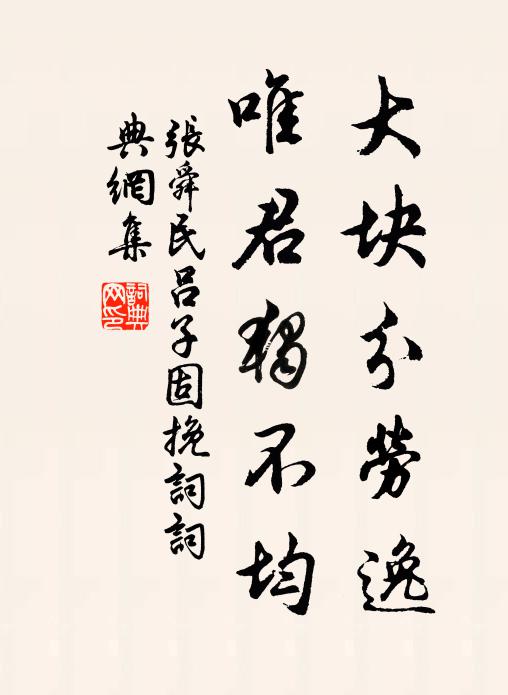 大块分勞逸
唯君獨不均
張舜民呂子固挽詞詞
典網集
詞典
网印